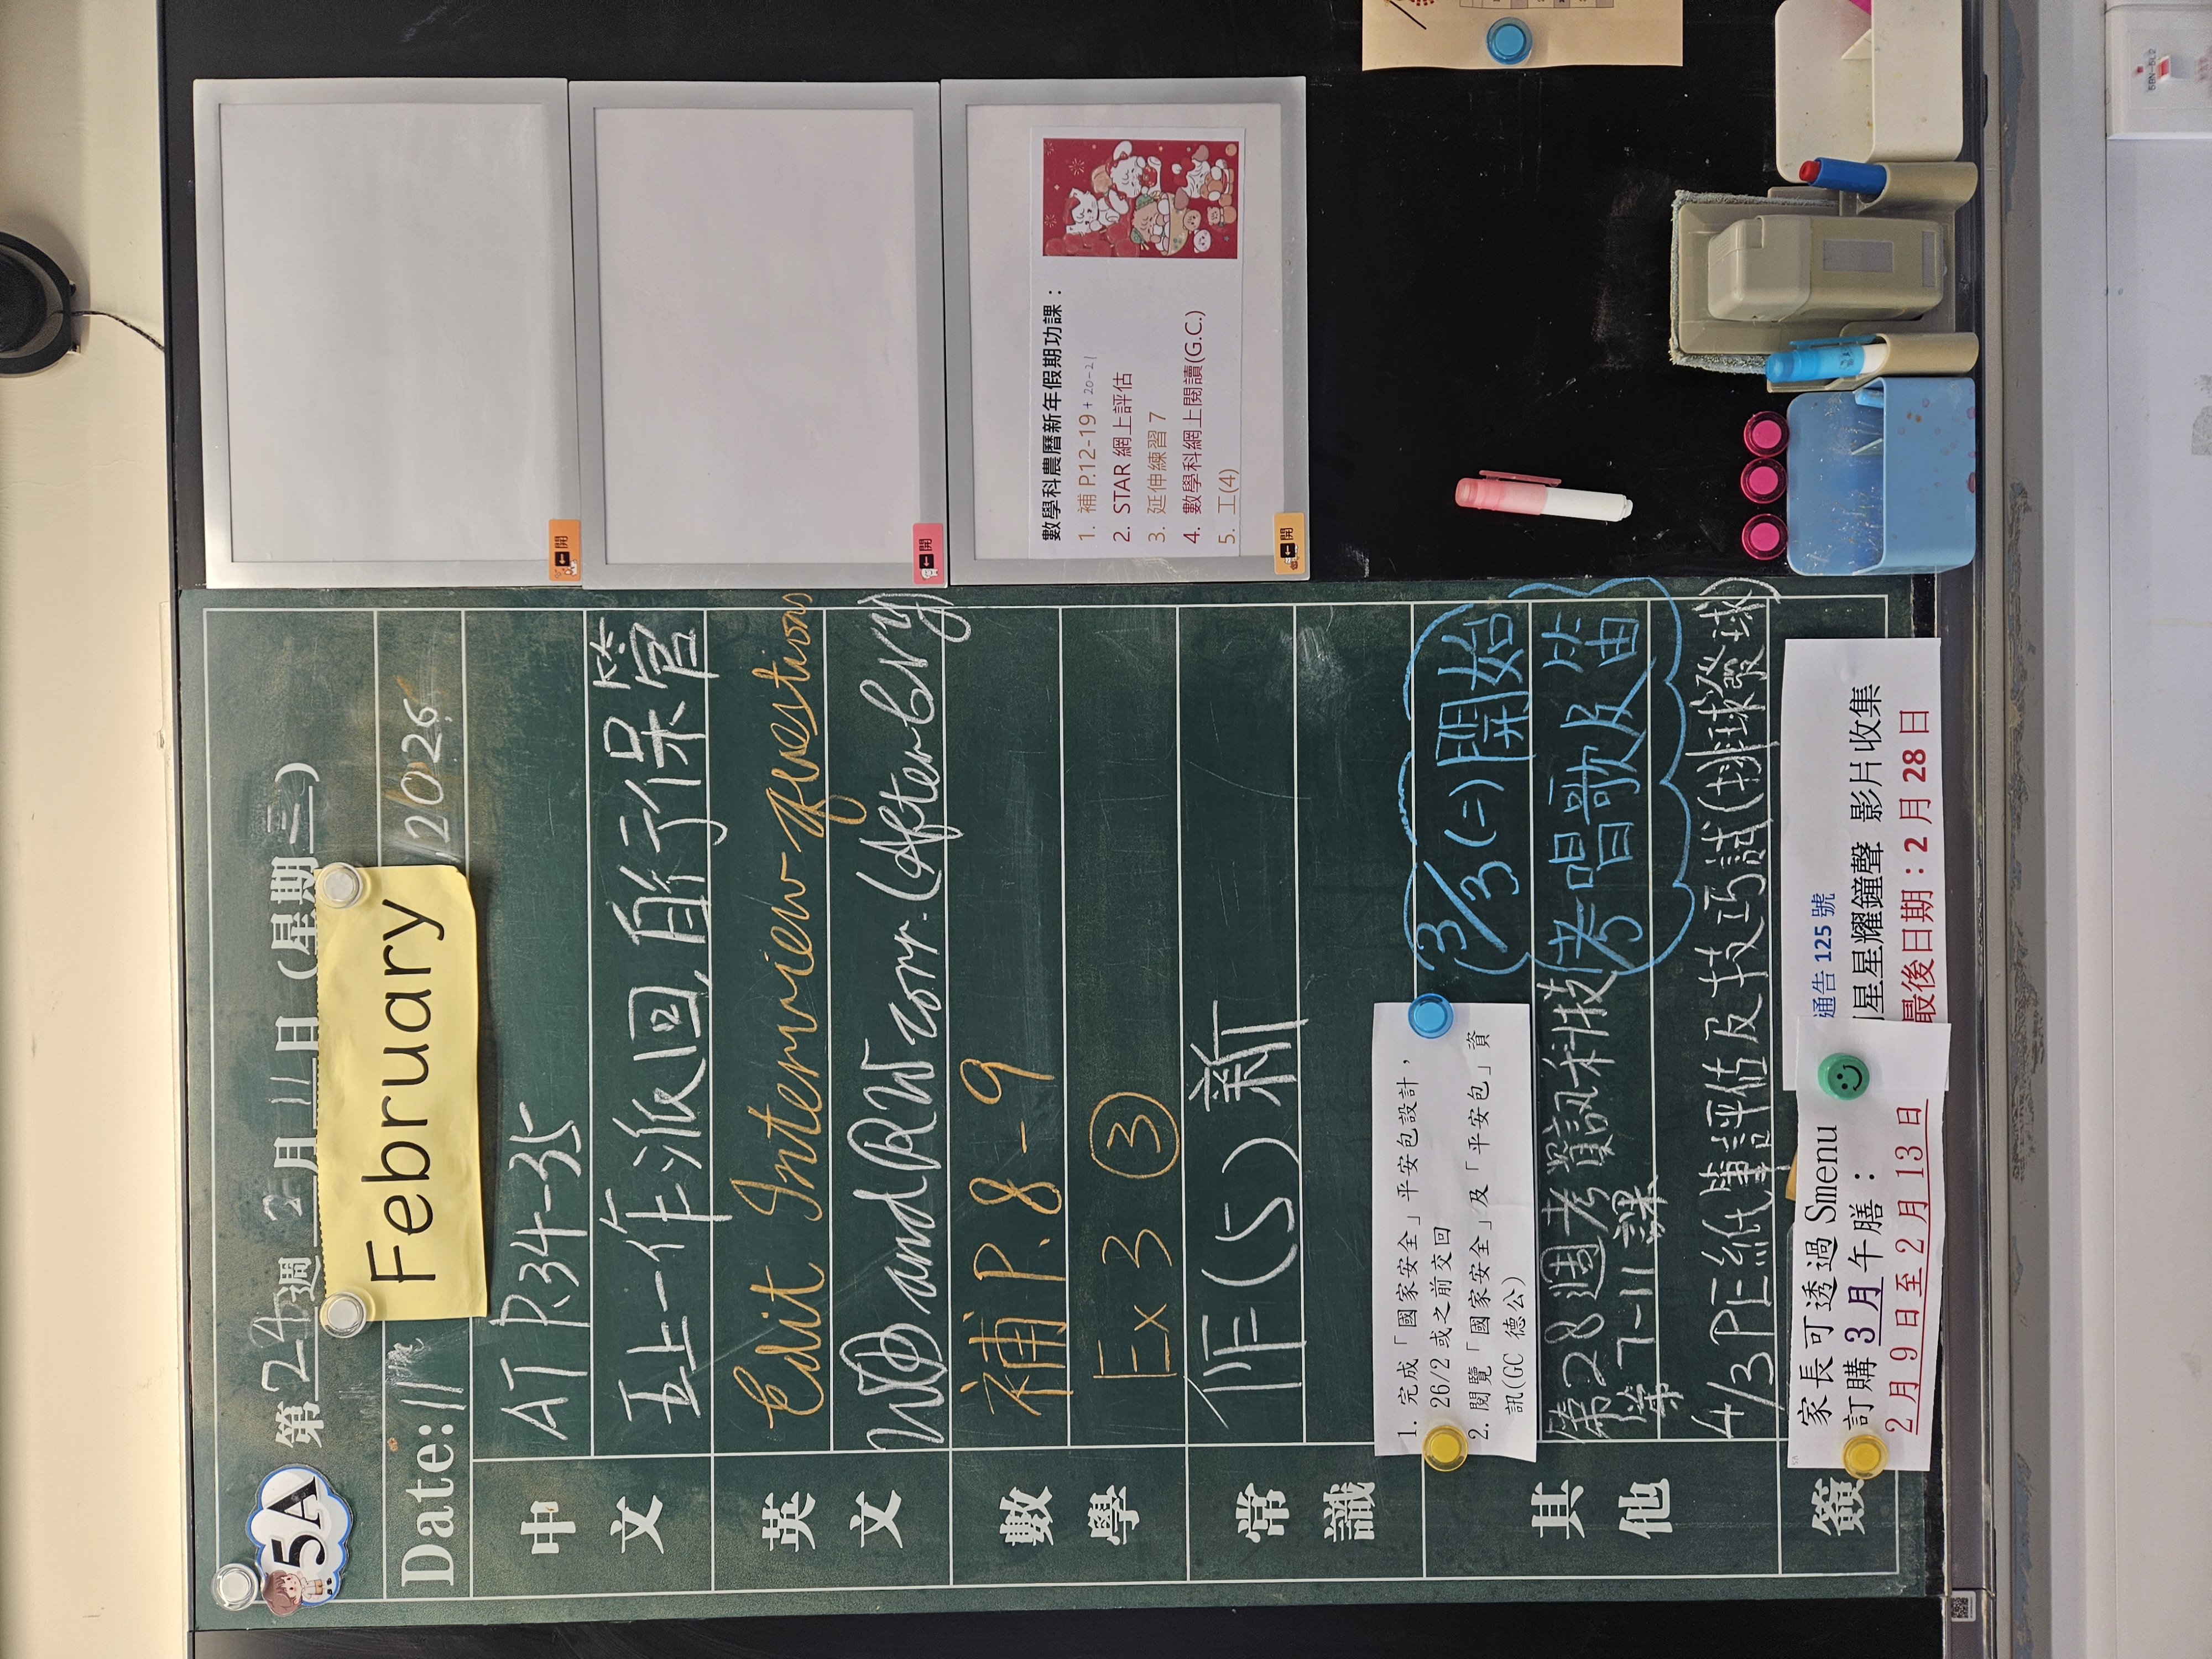 5A
第24週 2月11日(星期三)
Date: 11 February 2026
中文
AT P.34-35
五上一作派回,自行保管
英文
Edit Interview questions
WB and RW corr. (After Bry)
數學
補 P.8-9
Ex 3 ③
常識
作(5)新
其他
1. 完成「國家安全」平安包設計,
26/2 或之前交回
2. 閱覽「國家安全」及「平安包」資
訊(GC 德公)
3/3(二)開始
考唱歌及笛
第28週考資訊科技
第7-11課
4/3 PE紙筆評估及技巧試(排球發球)
簽
家長可透過 Smenu
訂購 3 月午膳:
2 月 9 日至 2 月 13 日
通告 125 號
星星耀鐘聲 影片收集
最後日期:2 月 28 日
開
開
數學科農曆新年假期功課:
1. 補 P.12-19 + 20-21
2. STAR 網上評估
3. 延伸練習 7
4. 數學科網上閱讀(G.C.)
5. 工(4)
開